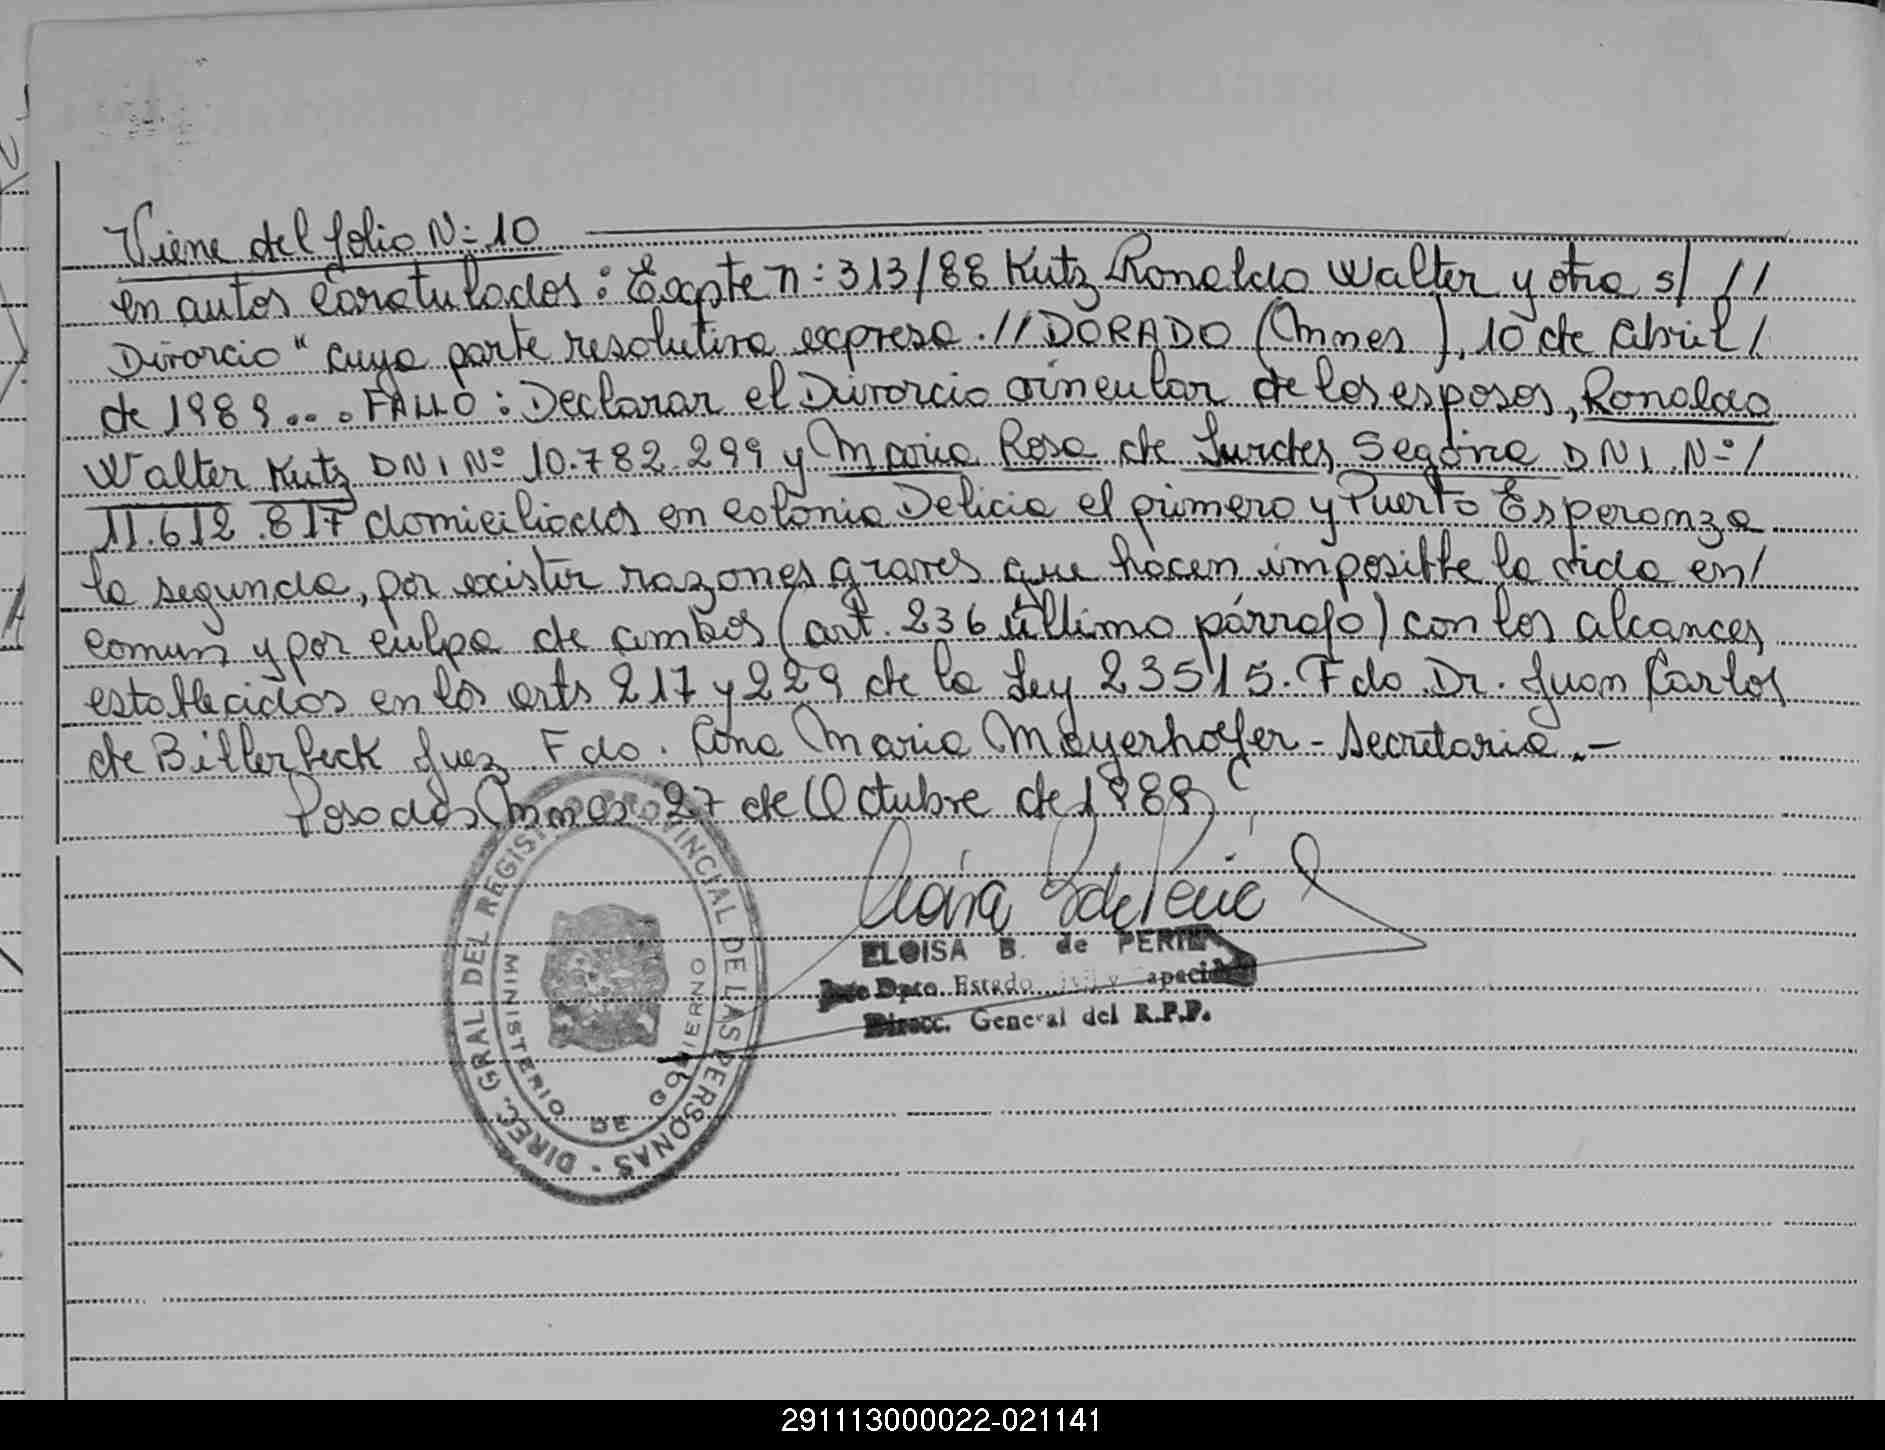 Viene del folio N: 10
en autos Caratulados: Expte n: 313/88 Kutz Ronaldo Walter y otra s/ //
Divorcio" cuya parte resolutiva expresa. //DORADO (Mnes), 10 de Abril /
de 1989... FALLO: Declarar el Divorcio vincular de los esposos, Ronaldo
Walter Kutz DNI Nº 10.782.299 y Maria Rosa de Lurdes Segovia DNI. Nº /
11.612.817 domiciliados en Colonia Delicia el primero y Puerto Esperanza
la segunda, por existir razones graves que hacen imposible la vida en /
comun y por culpa de ambos (art. 236 último párrafo) con los alcances
establecidos en los arts 217 y 229 de la Ley 23515. Fdo. Dr. Juan Carlos
de Billerbeck Juez. Fdo. Ana Maria Mayerhofer - Secretaria.-
Posadas Mnes 27 de Octubre de 1989
ELOISA B. de
Jefe Dpto. Estado Civil y Capacidad
Direcc. General del R.P.P.
DIREC. GRAL DEL REGIST. PROVINCIAL DE LAS PERSONAS
MINISTERIO DE GOBIERNO
291113000022-021141